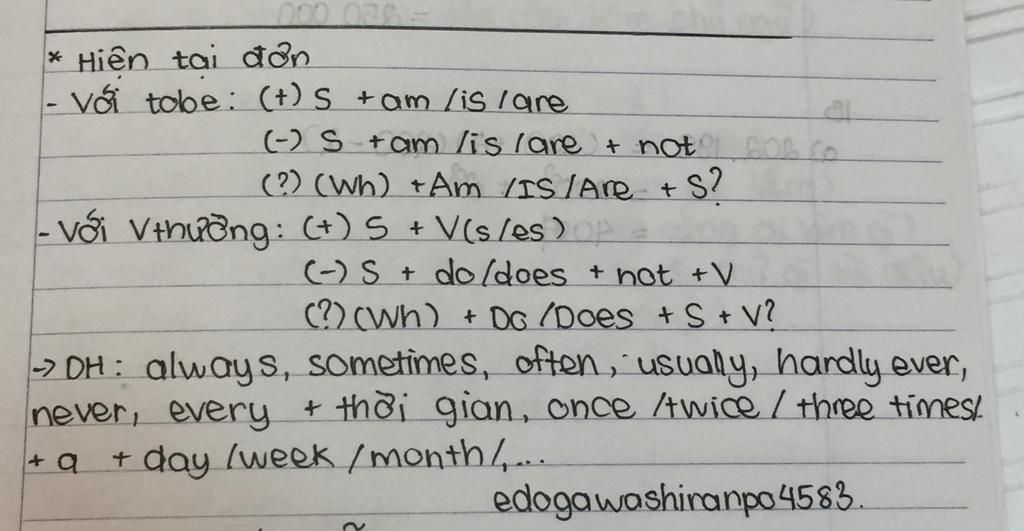 * Hiện tại đơn
- Với tobe: (+) S + am /is /are
(-) S + am /is /are + not
(?) (Wh) + Am /IS /Are + S?
- Với Vthường: (+) S + V(s/es)
(-) S + do/does + not + V
(?) (Wh) + Do /Does + S + V?
→ DH: always, sometimes, often, usually, hardly ever,
never, every + thời gian, once /twice / three times/
+ a + day /week /month /,...
edogawashiranpo4583.